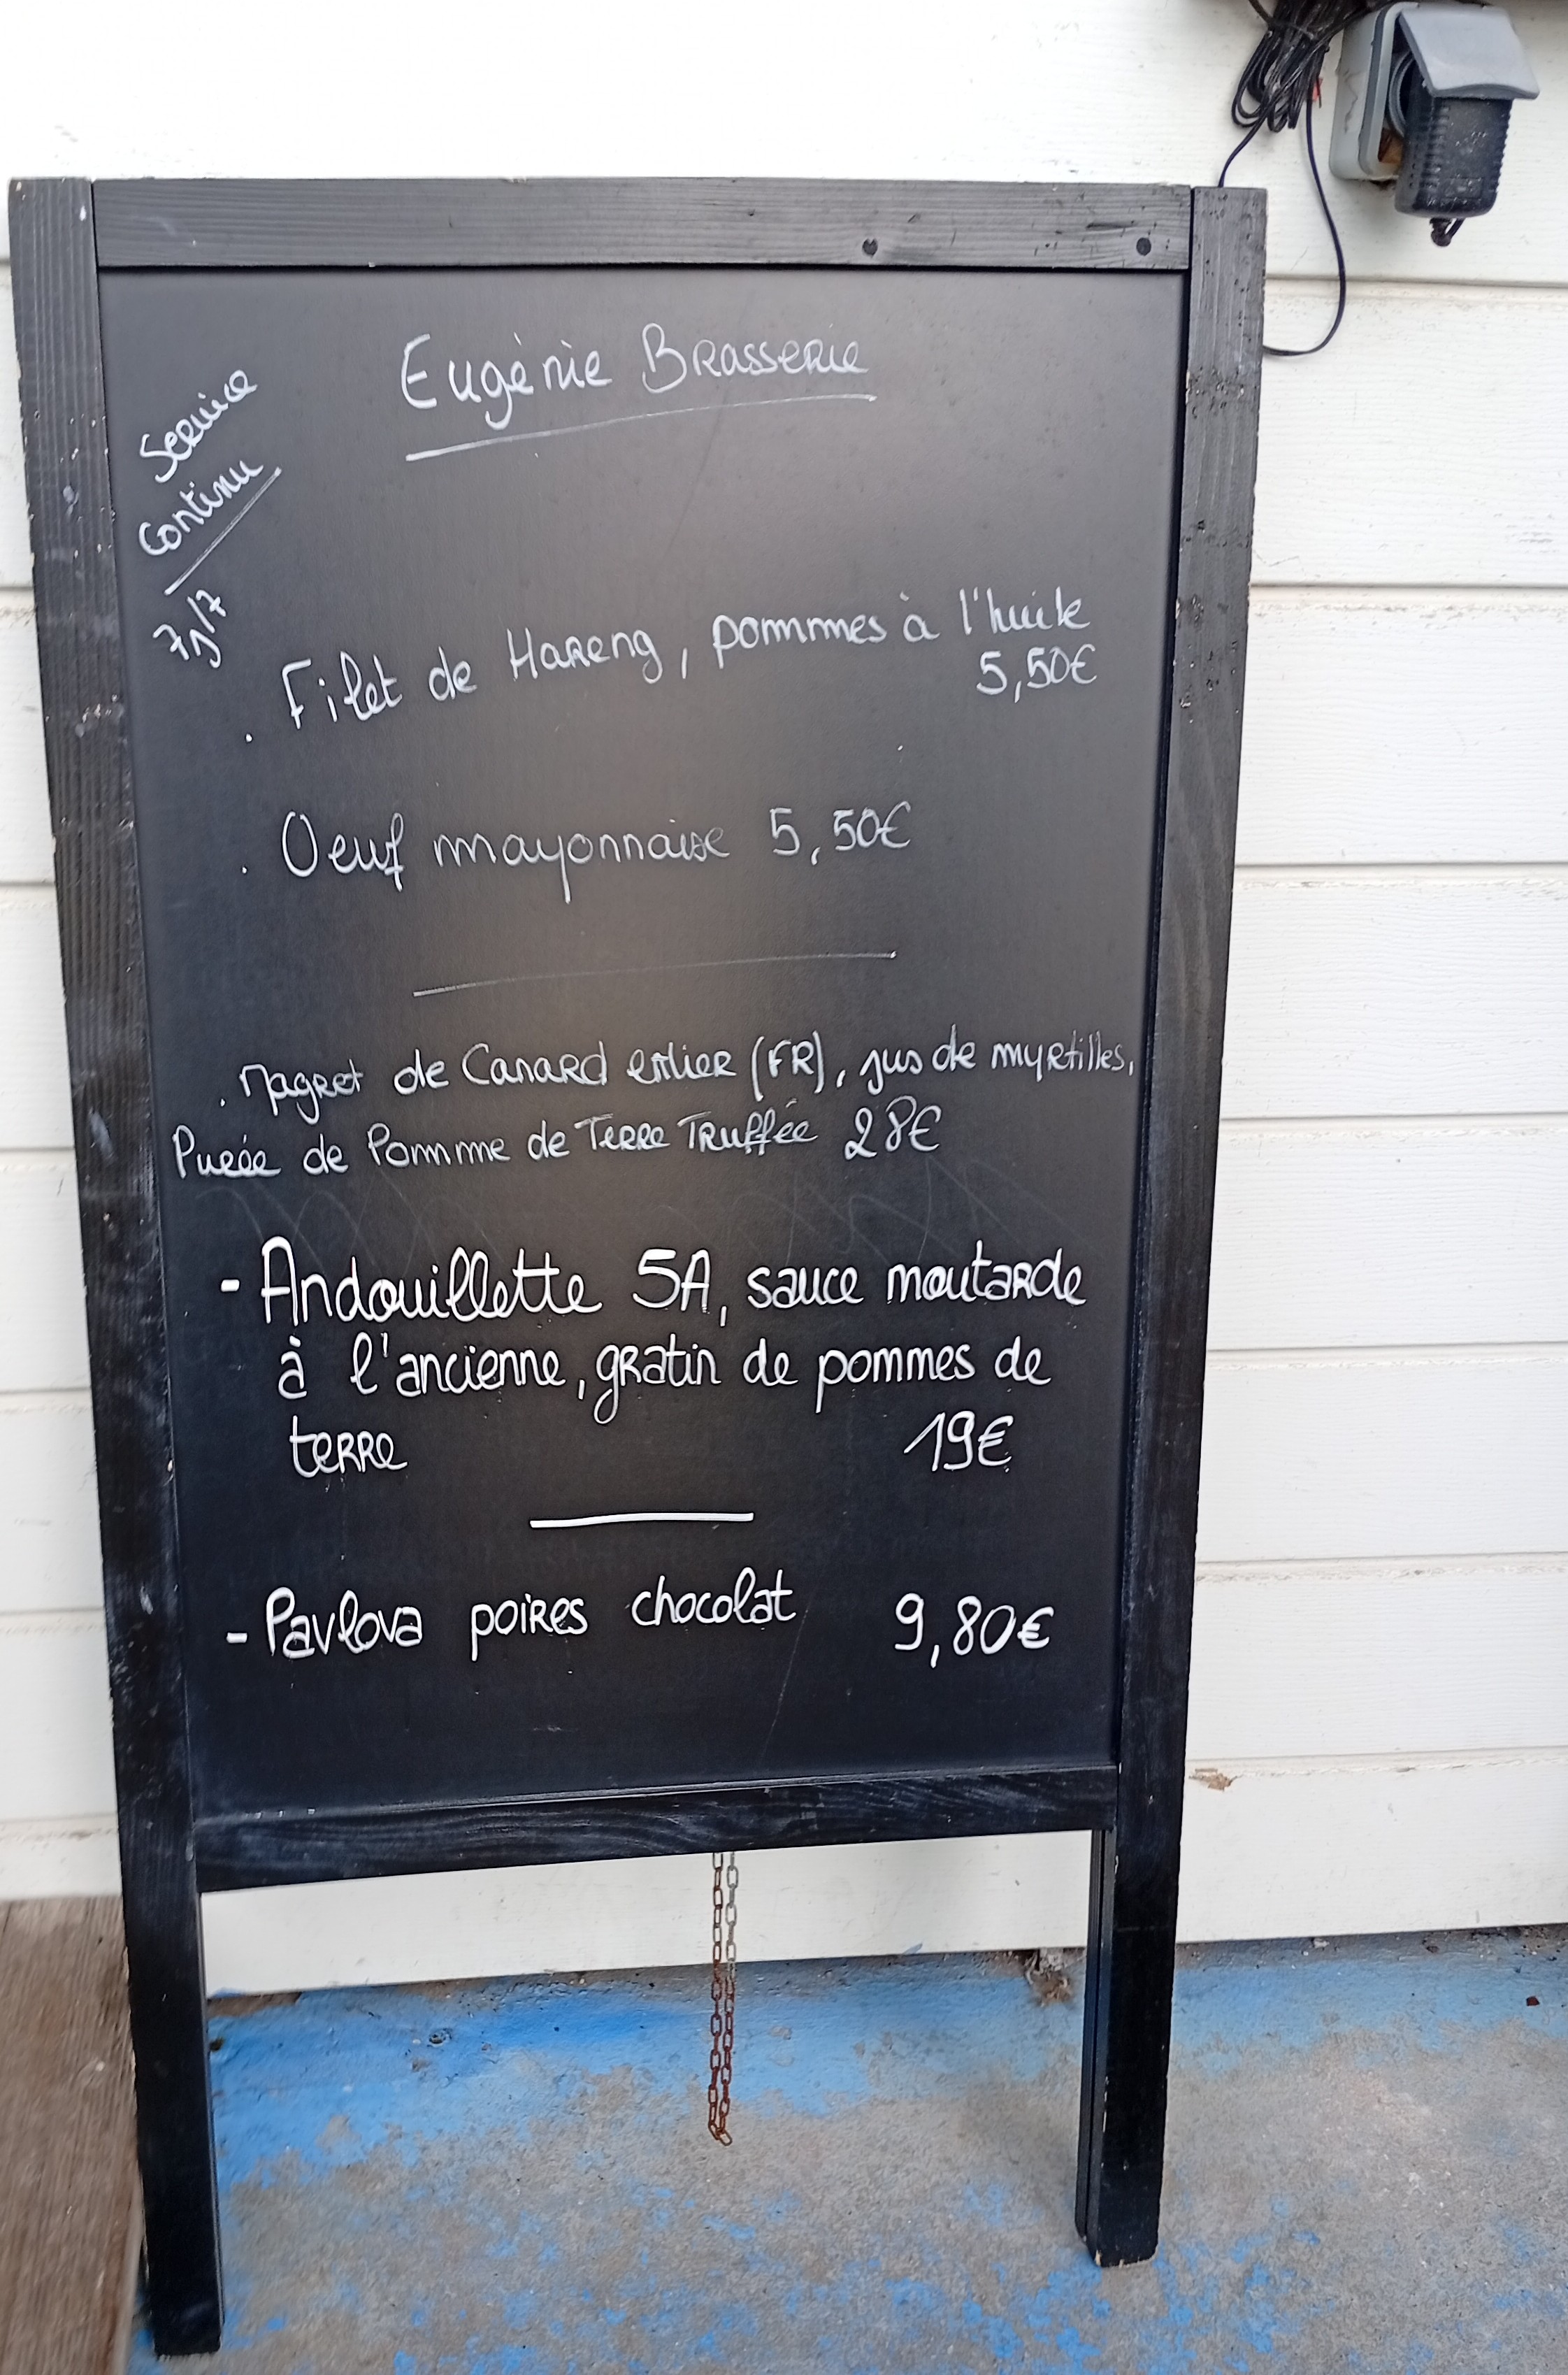 Eugénie Brasserie
Service
Continu
7j/7
. Filet de Hareng, pommes à l'huile
5,50€
. Oeuf mayonnaise 5,50€
. Magret de Canard entier (FR), jus de myrtilles,
Purée de Pomme de Terre Truffée 28€
- Andouillette 5A, sauce moutarde
à l'ancienne, gratin de pommes de
terre 19€
- Pavlova poires chocolat 9,80€